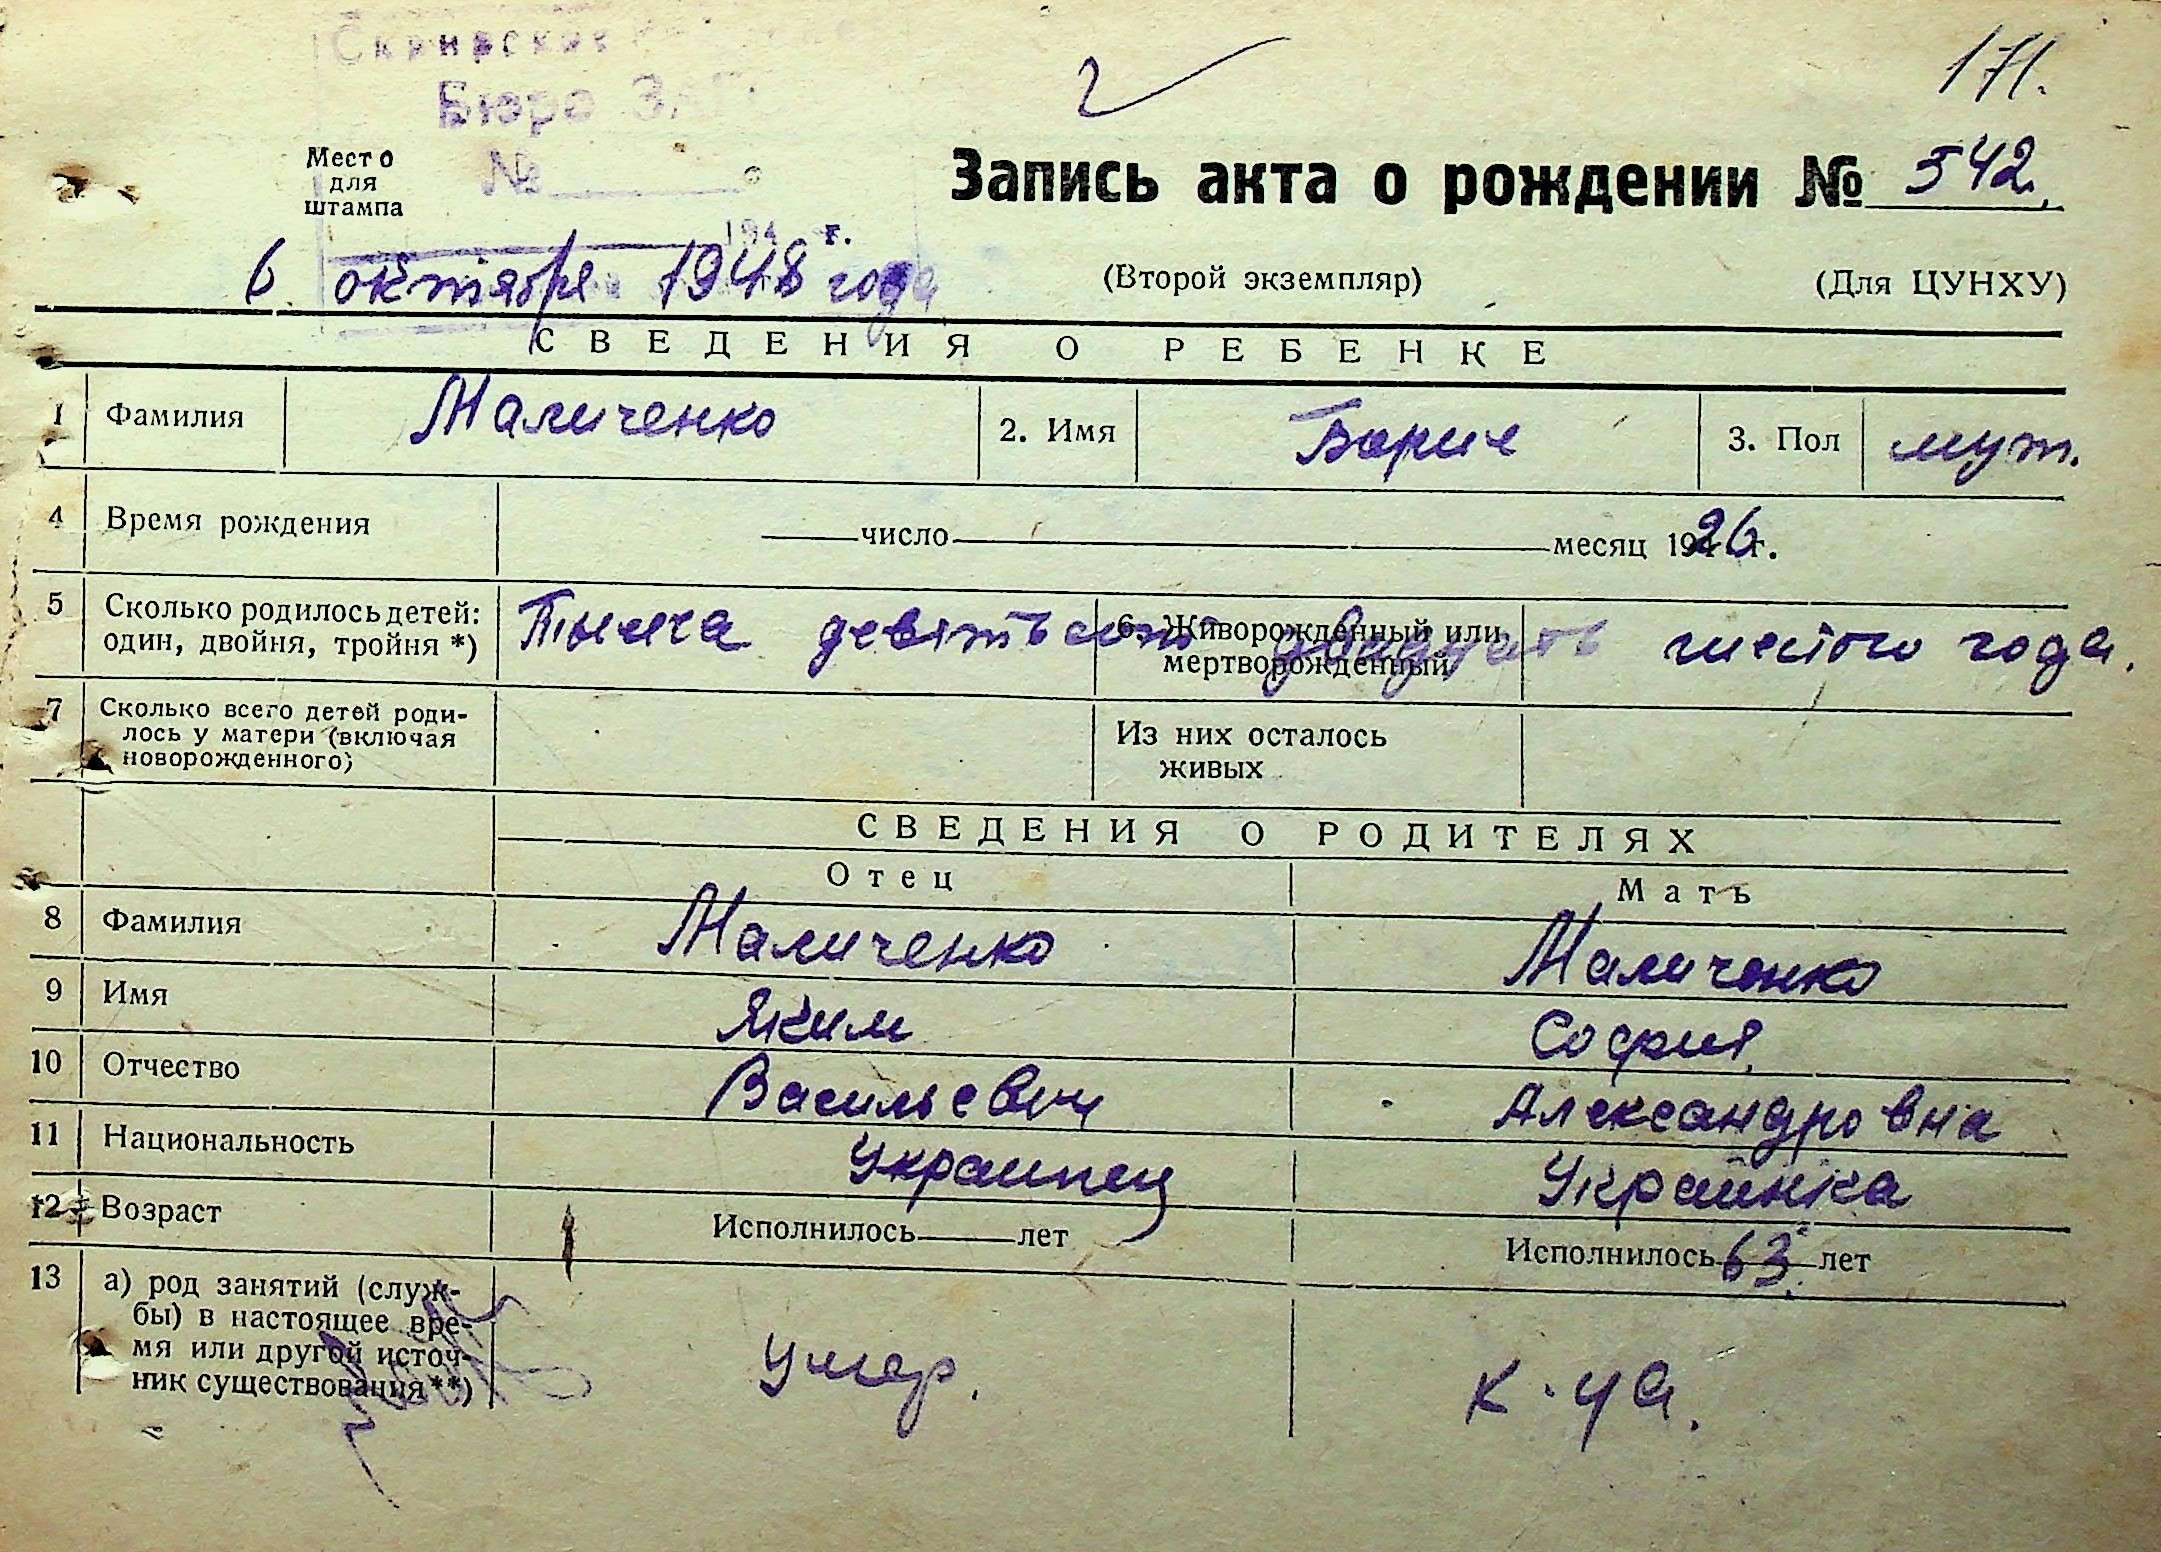 171.
Бюро
№
Место
для
штампа
Запись акта о рождении № 542.
194 г.
6 октября 1948 года
(Второй экземпляр)
(Для ЦУНХУ)
СВЕДЕНИЯ О РЕБЕНКЕ
1 Фамилия Маличенко 2. Имя Борис 3. Пол муж.
4 Время рождения число месяц 1926 г.
5 Сколько родилось детей: 6. Живорожденный или
один, двойня, тройня *) мертворожденный
Тысяча девятьсот двадцать шестого года.
7 Сколько всего детей роди- Из них осталось
лось у матери (включая живых
новорожденного)
СВЕДЕНИЯ О РОДИТЕЛЯХ
Отец Мать
8 Фамилия Маличенко Маличенко
9 Имя Яким София
10 Отчество Васильевич Александровна
11 Национальность Украинец Украинка
12 Возраст Исполнилось лет Исполнилось 63 лет
13 а) род занятий (служ-
бы) в настоящее вре-
мя или другой источ- умер.
ник существования**) к-ца.